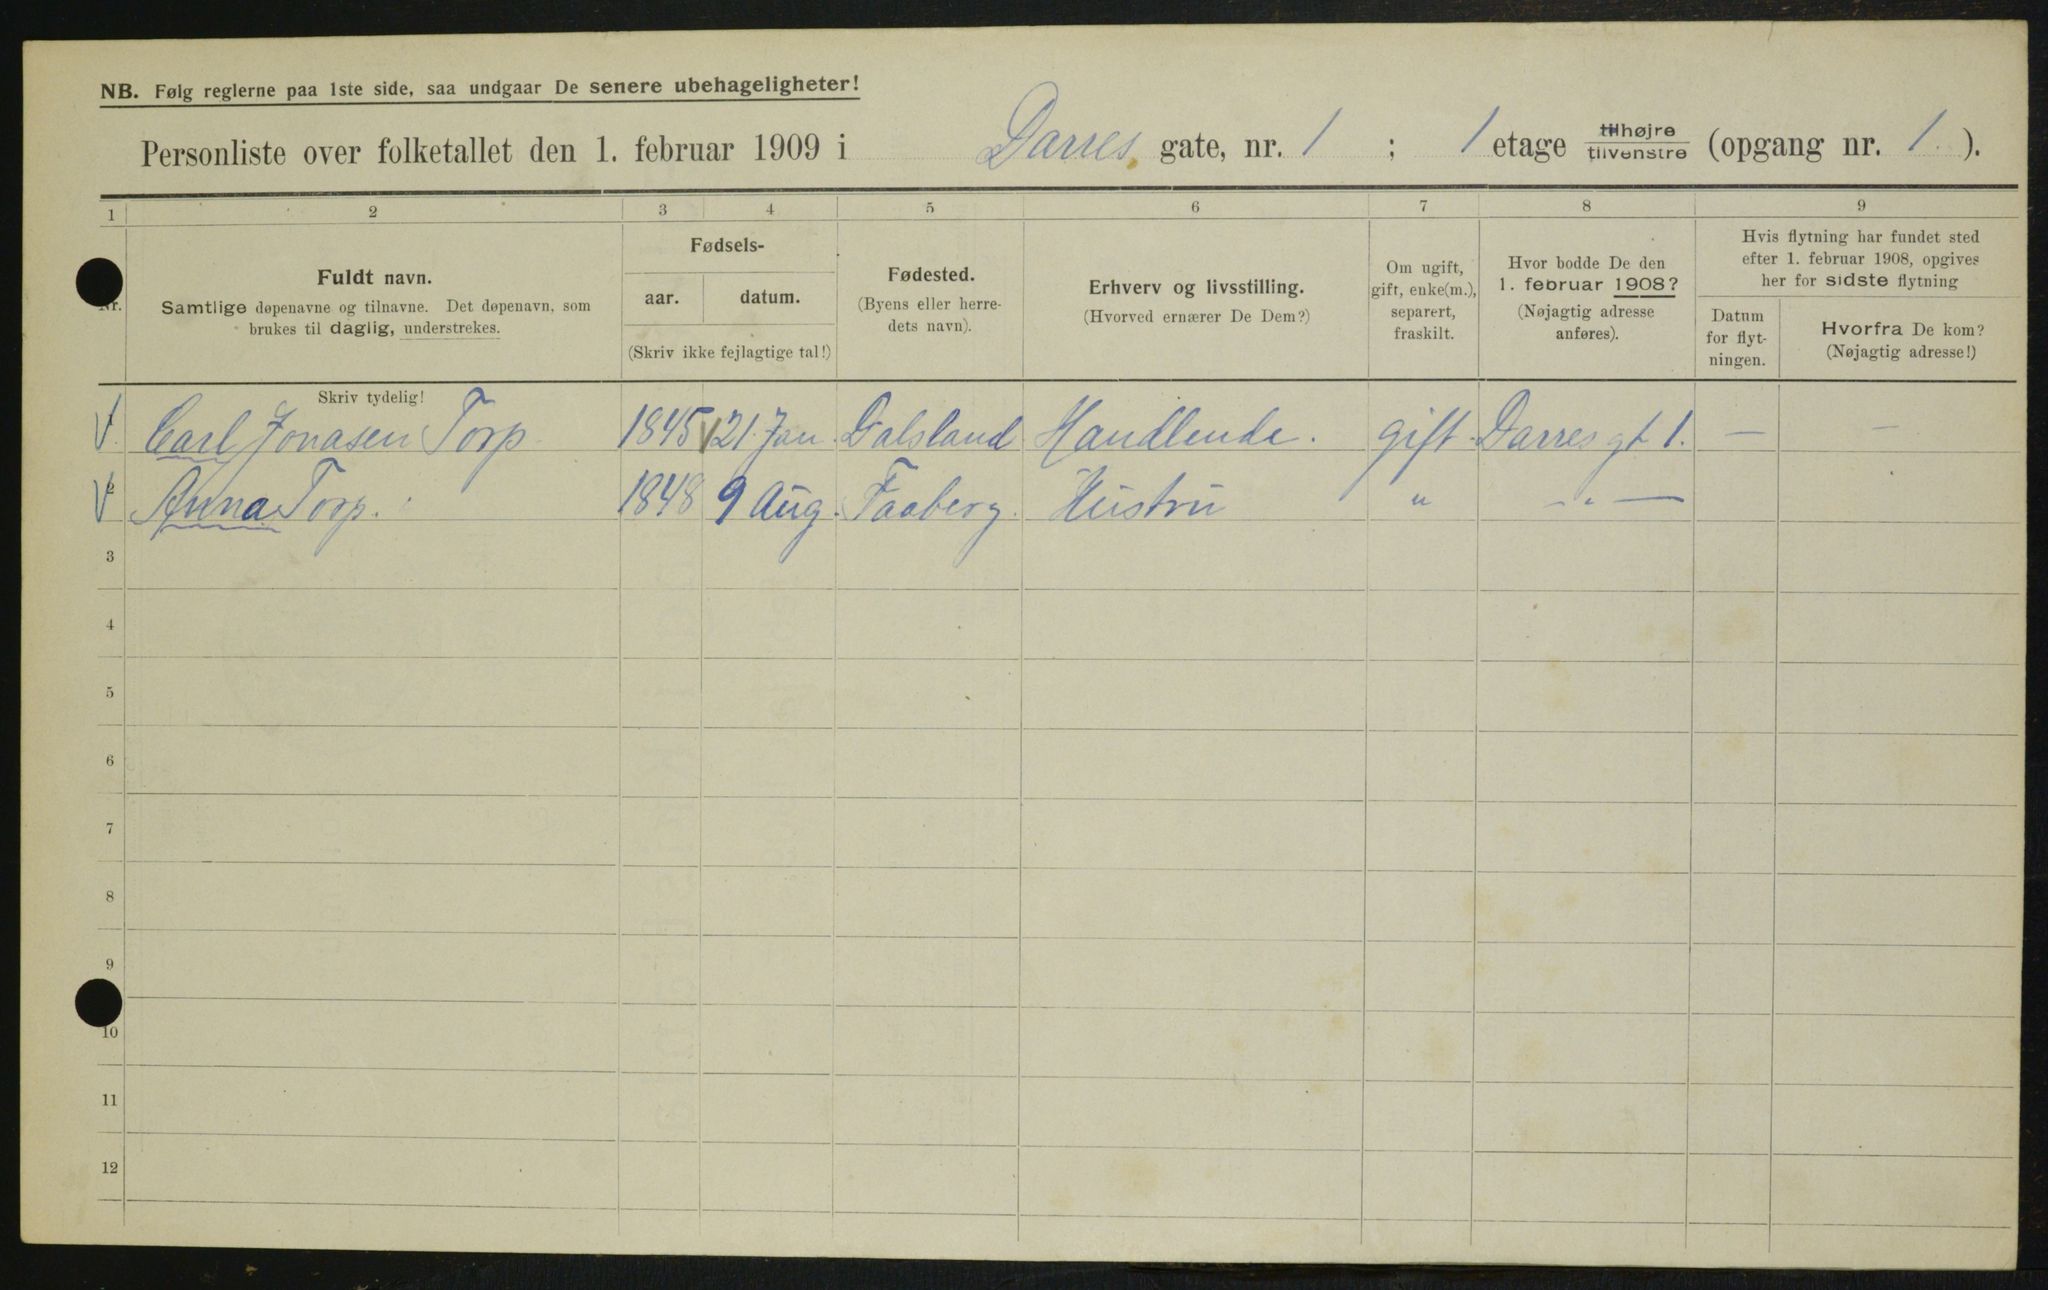 NB. Følg reglerne paa 1ste side, saa undgaar De senere ubehageligheter!
Personliste over folketallet den 1. februar 1909 i Darres gate, nr. 1 ; 1 etage til højre / til venstre (opgang nr. 1. ).
1 2 3 4 5 6 7 8 9
Nr.
Fuldt navn.
Samtlige døpenavne og tilnavne. Det døpenavn, som
brukes til daglig, understrekes.
Skriv tydelig!
Fødsels-
aar. datum.
(Skriv ikke fejlagtige tal!)
Fødested.
(Byens eller herre-
dets navn).
Erhverv og livsstilling.
(Hvorved ernærer De Dem?)
Om ugift,
gift, enke(m.),
separert,
fraskilt.
Hvor bodde De den
1. februar 1908?
(Nøjagtig adresse
anføres).
Hvis flytning har fundet sted
efter 1. februar 1908, opgives
her for sidste flytning
Datum
for flyt-
ningen.
Hvorfra De kom?
(Nøjagtig adresse!)
Carl Jonasen Torp 1845 21 Jan. Dalsland Handlende. gift. Darres gt 1. — —
2 Anna Torp. 1848 9 Aug. Faaberg. Hustru " -"—
3
4
5
6
7
8
9
10
11
12